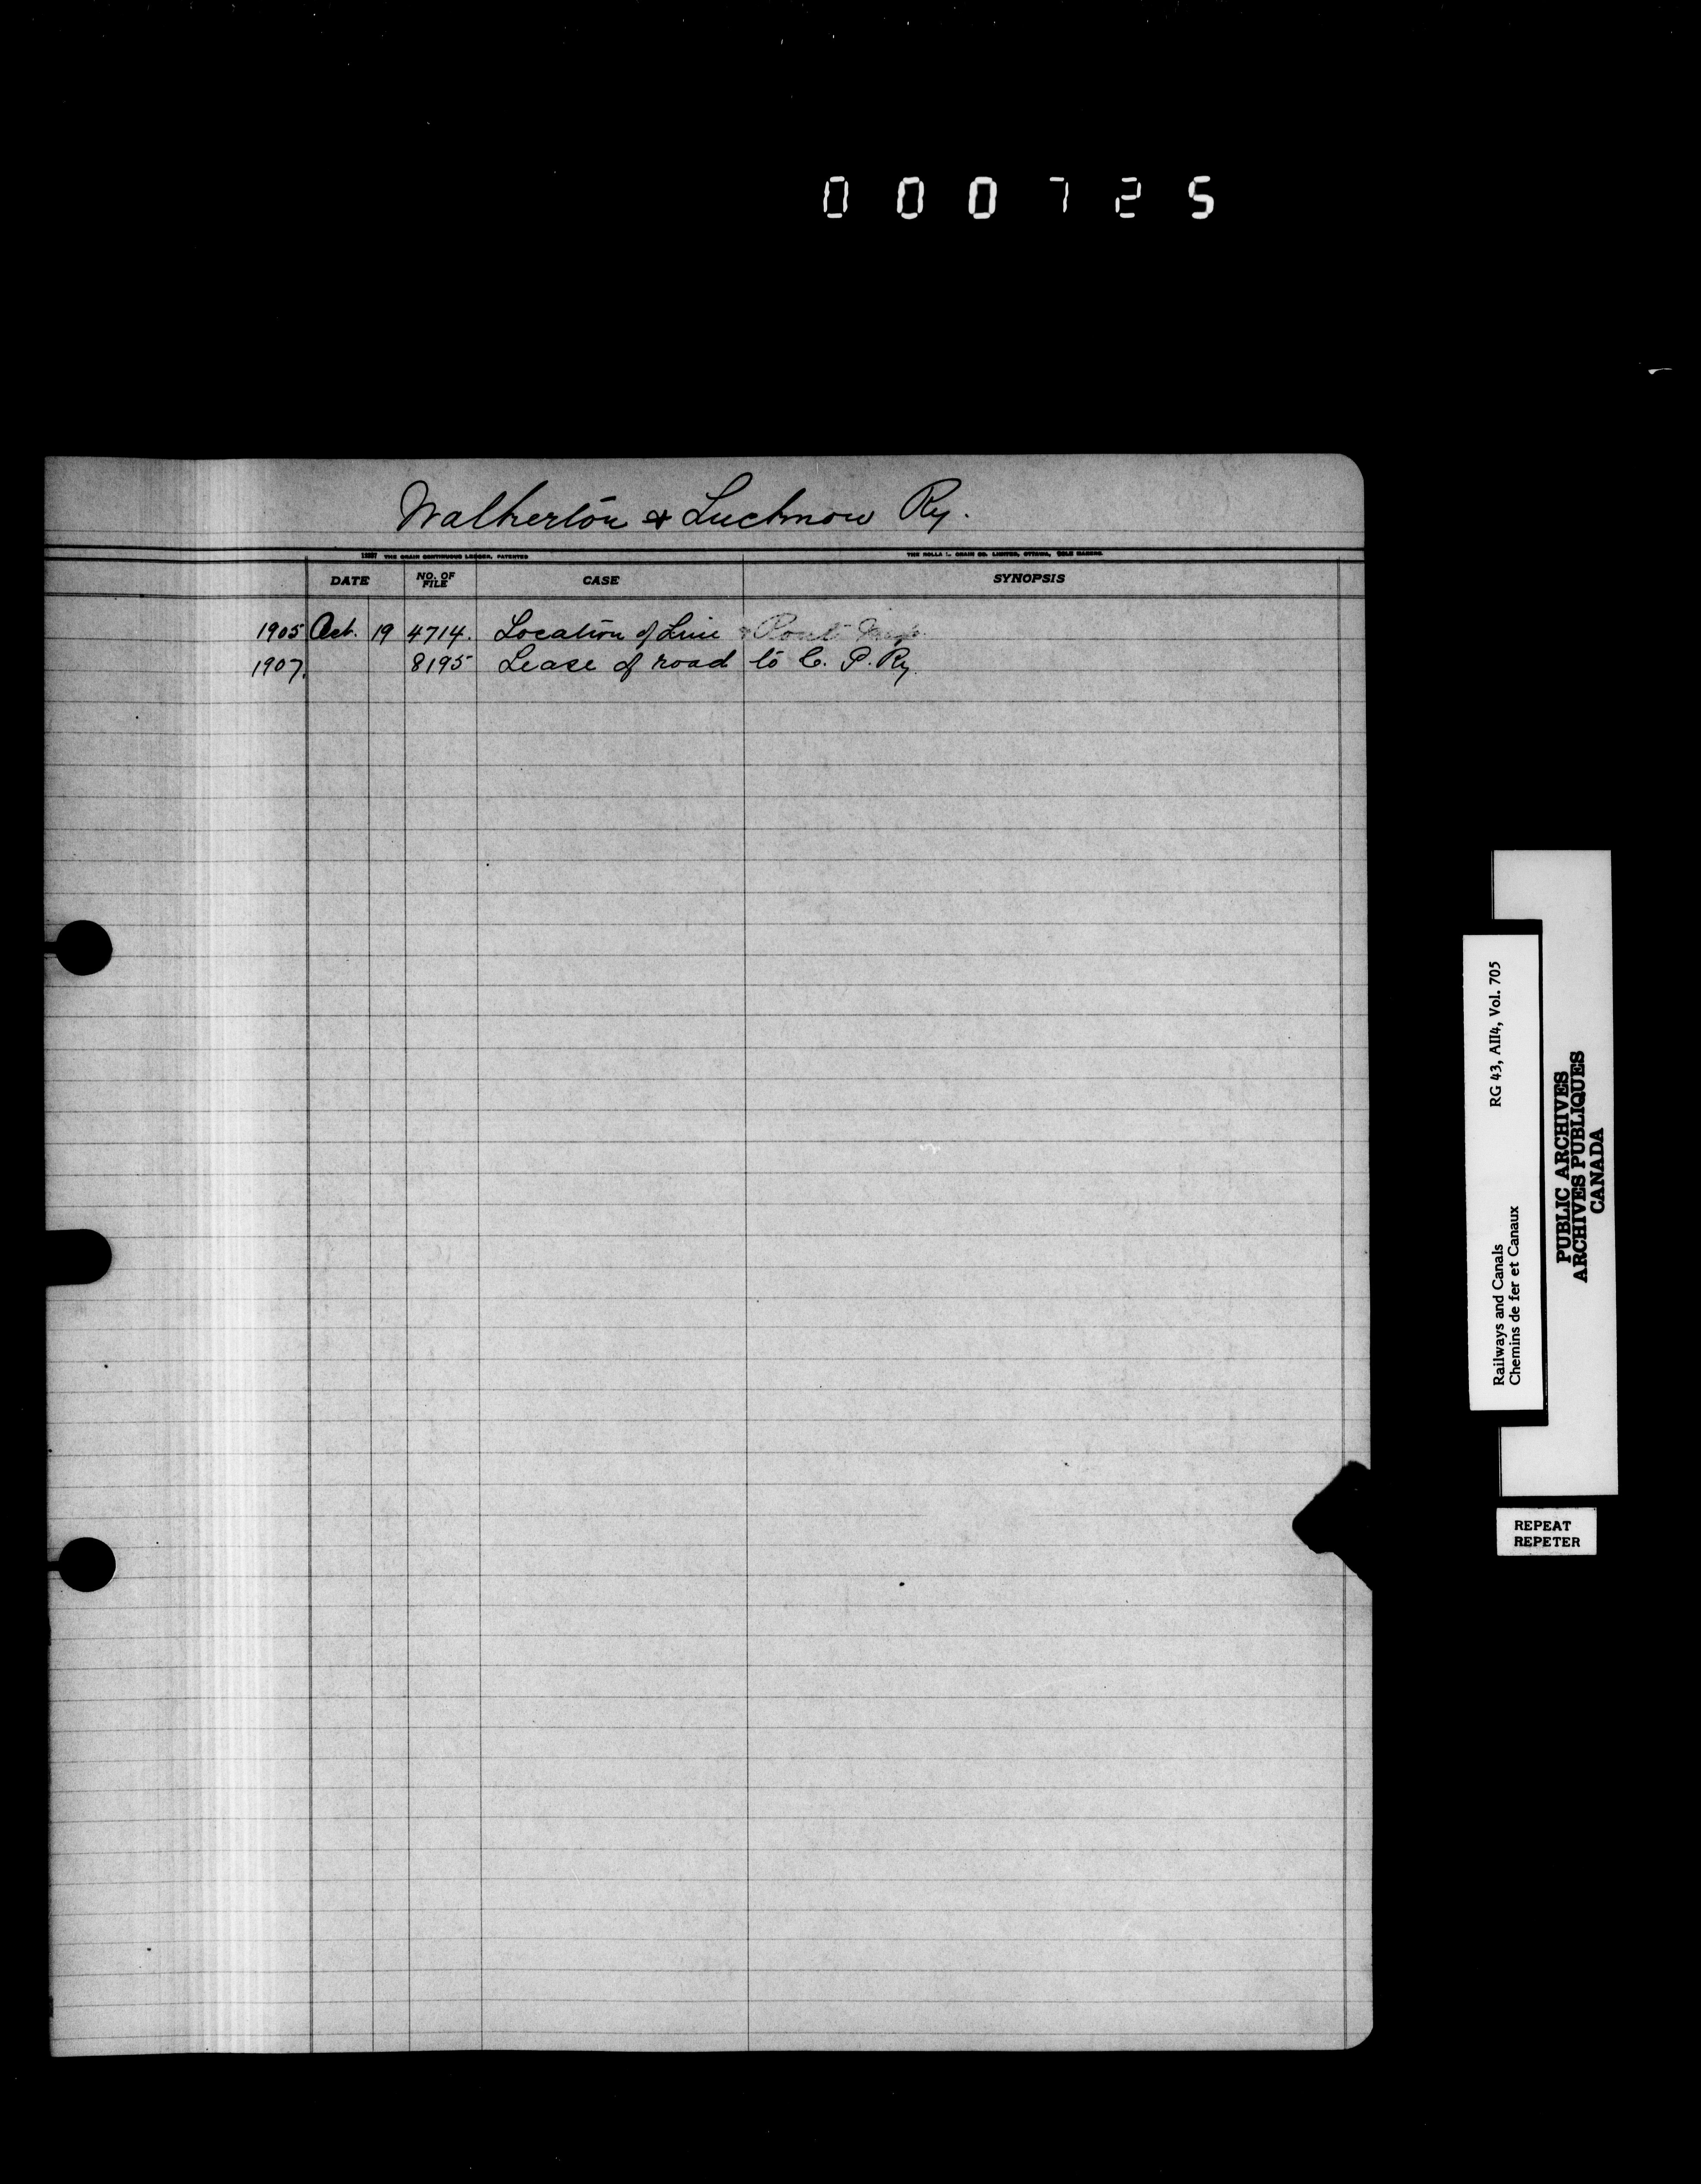 000725
Walkerton & Lucknow Ry.
12337 THE CRAIN CONTINUOUS LEDGER, PATENTED THE ROLLA L. CRAIN CO. LIMITED, OTTAWA, SOLE MAKERS
DATE NO. OF FILE CASE SYNOPSIS
1905 Oct. 19 4714. Location of Line & Route Map.
1907. 8195 Lease of road to C. P. Ry.
Railways and Canals RG 43, AII4, Vol. 705
Chemins de fer et Canaux
PUBLIC ARCHIVES
ARCHIVES PUBLIQUES
CANADA
REPEAT
REPETER